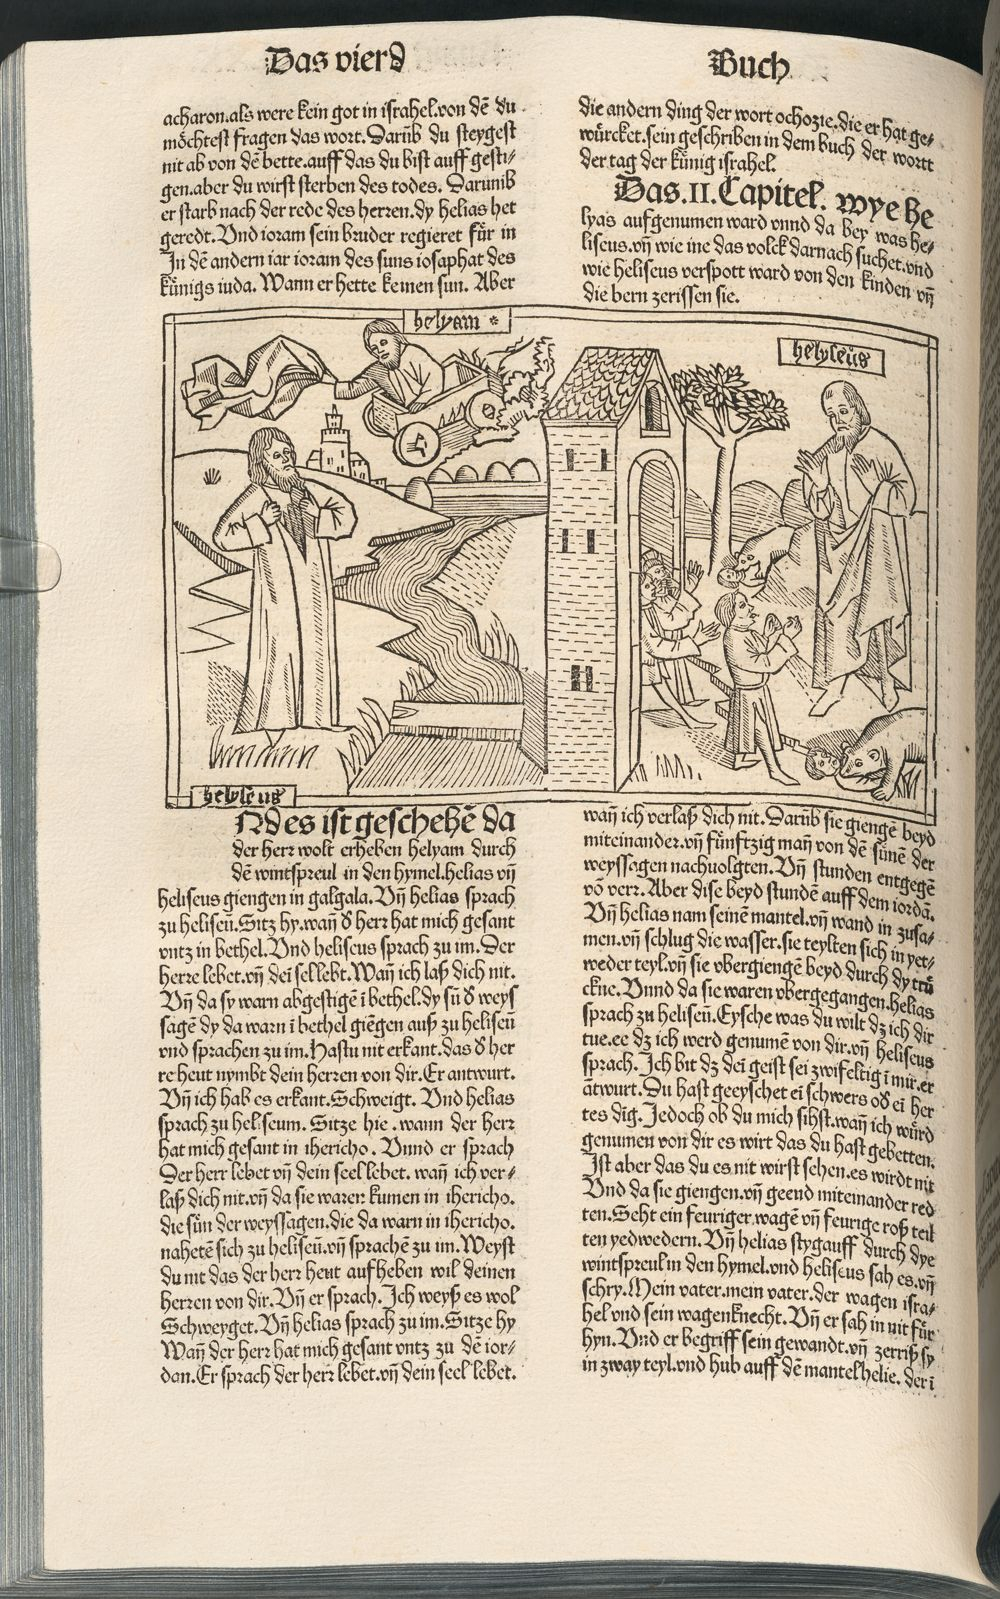 Das vierd
Buch
acharon.als were kein got in israhel.von dē du
möchtest fragen das wort. Darūb du steygest
nit ab von dē bette.auff das du bist auff gesti⸗
gen.aber du wirst sterben des todes. Darumb
er starb nach der rede des herren.dy helias het
geredt. Vnd ioram sein bruder regieret für in
In dē andern iar ioram des suns iosaphat des
künigs iuda. Wann er hette keinen sun. Aber
die andern ding der wort ochozie.die er hat ge⸗
würcket.sein geschriben in dem buch der wortt
der tag der künig israhel.
Das.II.Capitel. wye he
lyas aufgenumen ward vnnd da bey was he⸗
liseus.vn̄ wie ine das volck darnach suchet.vnd
wie heliseus verspott ward von den kinden vn̄
die bern zerissen sie.
helyam
helyseus
helyseus
Nd es ist geschehē da
der herr wolt erheben helyam durch
dē wintspreul in den hymel.helias vn̄
heliseus giengen in galgala. Vn̄ helias sprach
zu heliseū. Sitz hy.wan̄ d herr hat mich gesant
vntz in bethel. Vnd heliseus sprach zu im. Der
herre lebet.vn̄ dei sel lebt. Wan̄ ich laß dich nit.
Vn̄ da sy warn abgestigē ī bethel.dy sū d weys
sagē dy da warn ī bethel giēgen auß zu heliseū
vnd sprachen zu im. Hastu nit erkant.das d her
re heut nymbt dein herren von dir. Er antwurt.
Vn̄ ich hab es erkant. Schweigt. Vnd helias
sprach zu heliseum. Sitze hie. wann der herr
hat mich gesant in ihericho. Vnnd er sprach
Der herr lebet vn̄ dein seel lebet. wan̄ ich ver⸗
laß dich nit.vn̄ da sie waren kumen in ihericho.
die sün der weyssagen.die da warn in ihericho.
nahetē sich zu heliseū.vn̄ sprachē zu im. Weyst
du nit das der herr heut aufheben wil deinen
herren von dir. Vn̄ er sprach. Ich weyß es wol
Schweyget. Vn̄ helias sprach zu im. Sitze hy
Wan̄ der herr hat mich gesant vntz zu dē ior⸗
dan. Er sprach der herr lebet.vn̄ dein seel lebet.
wan̄ ich verlaß dich nit. Darūb sie giengē beyd
miteinander.vn̄ fünftzig man̄ von dē sünē der
weyssagen nachuolgten. Vn̄ stunden entgegē
vō verr. Aber dise beyd stundē auff dem iordā.
Vn̄ helias nam seinē mantel.vn̄ wand in zusa⸗
men.vn̄ schlug die wasser.sie teylten sich in yet⸗
weder teyl.vn̄ sie vbergiengē beyd durch dy trü
ckne. Vnnd da sie waren vbergegangen.helias
sprach zu heliseū. Eysche was du wilt dz ich dir
tue.ee dz ich werd genumē von dir.vn̄ heliseus
sprach. Ich bit dz dei geist sei zwifeltig ī mir.er
ātwurt. Du hast geeyschet ei schwers od ei her
tes dīg. Jedoch ob du mich sihst.wan̄ ich würd
genumen von dir es wirt das du hast gebetten.
Ist aber das du es nit wirst sehen.es wirdt nit
Vnd da sie giengen.vn̄ geend miteinander red
ten. Seht ein feuriger wagē vn̄ feurige roß teil
ten yedwedern. Vn̄ helias styg auff durch dye
wintspreul in den hymel.vnd heliseus sah es.vn̄
schry. Mein vater.mein vater.der wagen isra⸗
hel vnd sein wagenknecht. Vn̄ er sah in nit für
hyn. Vnd er begriff sein gewandt.vn̄ zerriß sy
in zway teyl.vnd hub auff dē mantel helie. der ī